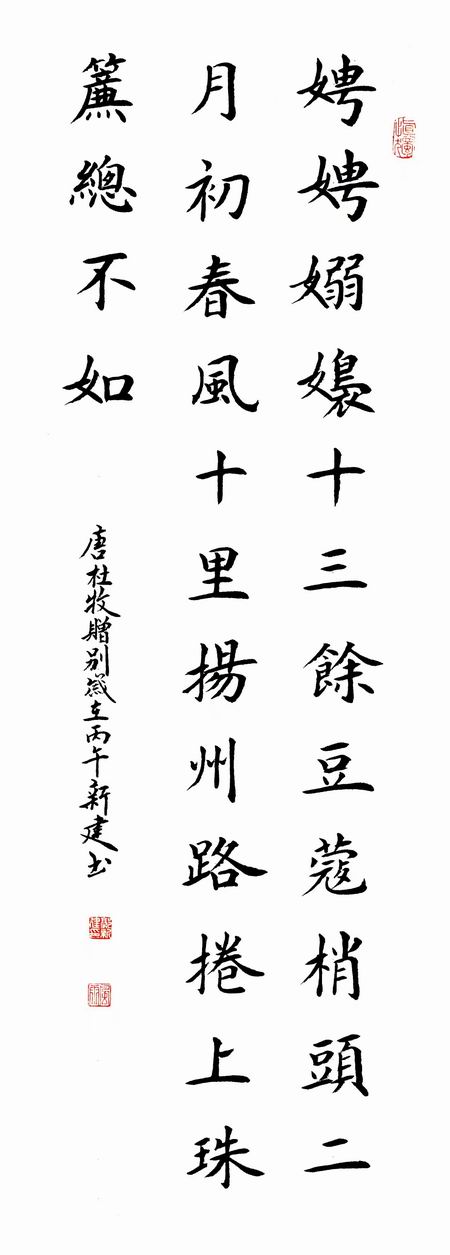 娉娉嫋嬝十三餘豆蔻梢頭二
月初春風十里揚州路捲上珠
簾總不如
唐杜牧贈別歲在丙午新建書